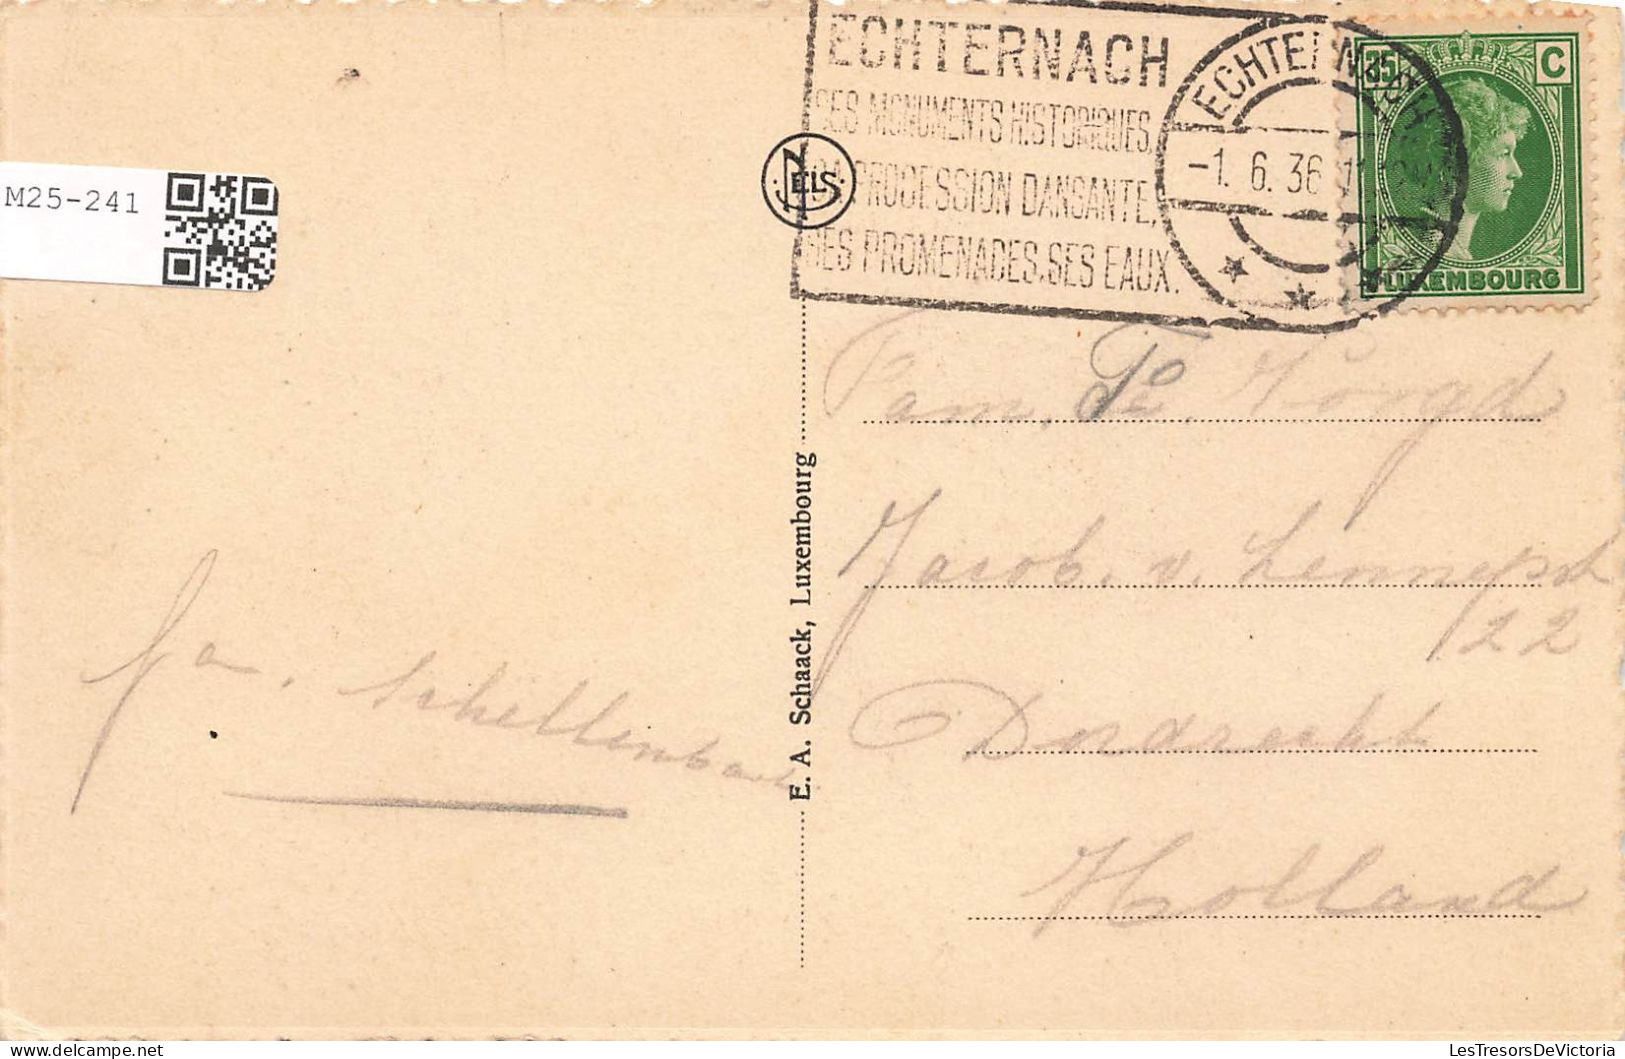 ECHTERNACH
SES MONUMENTS HISTORIQUES,
SA PROCESSION DANSANTE,
SES PROMENADES, SES EAUX.
ECHTERNACH
-1. 6. 36
35 C
LUXEMBOURG
NELS
M25-241
E. A. Schaack, Luxembourg
Fam. Hoogd
Jacob. v. Lennepst
22
Dordrecht
Holland
fa. Schellenbach
delcampe.net
LesTresorsDeVictoria